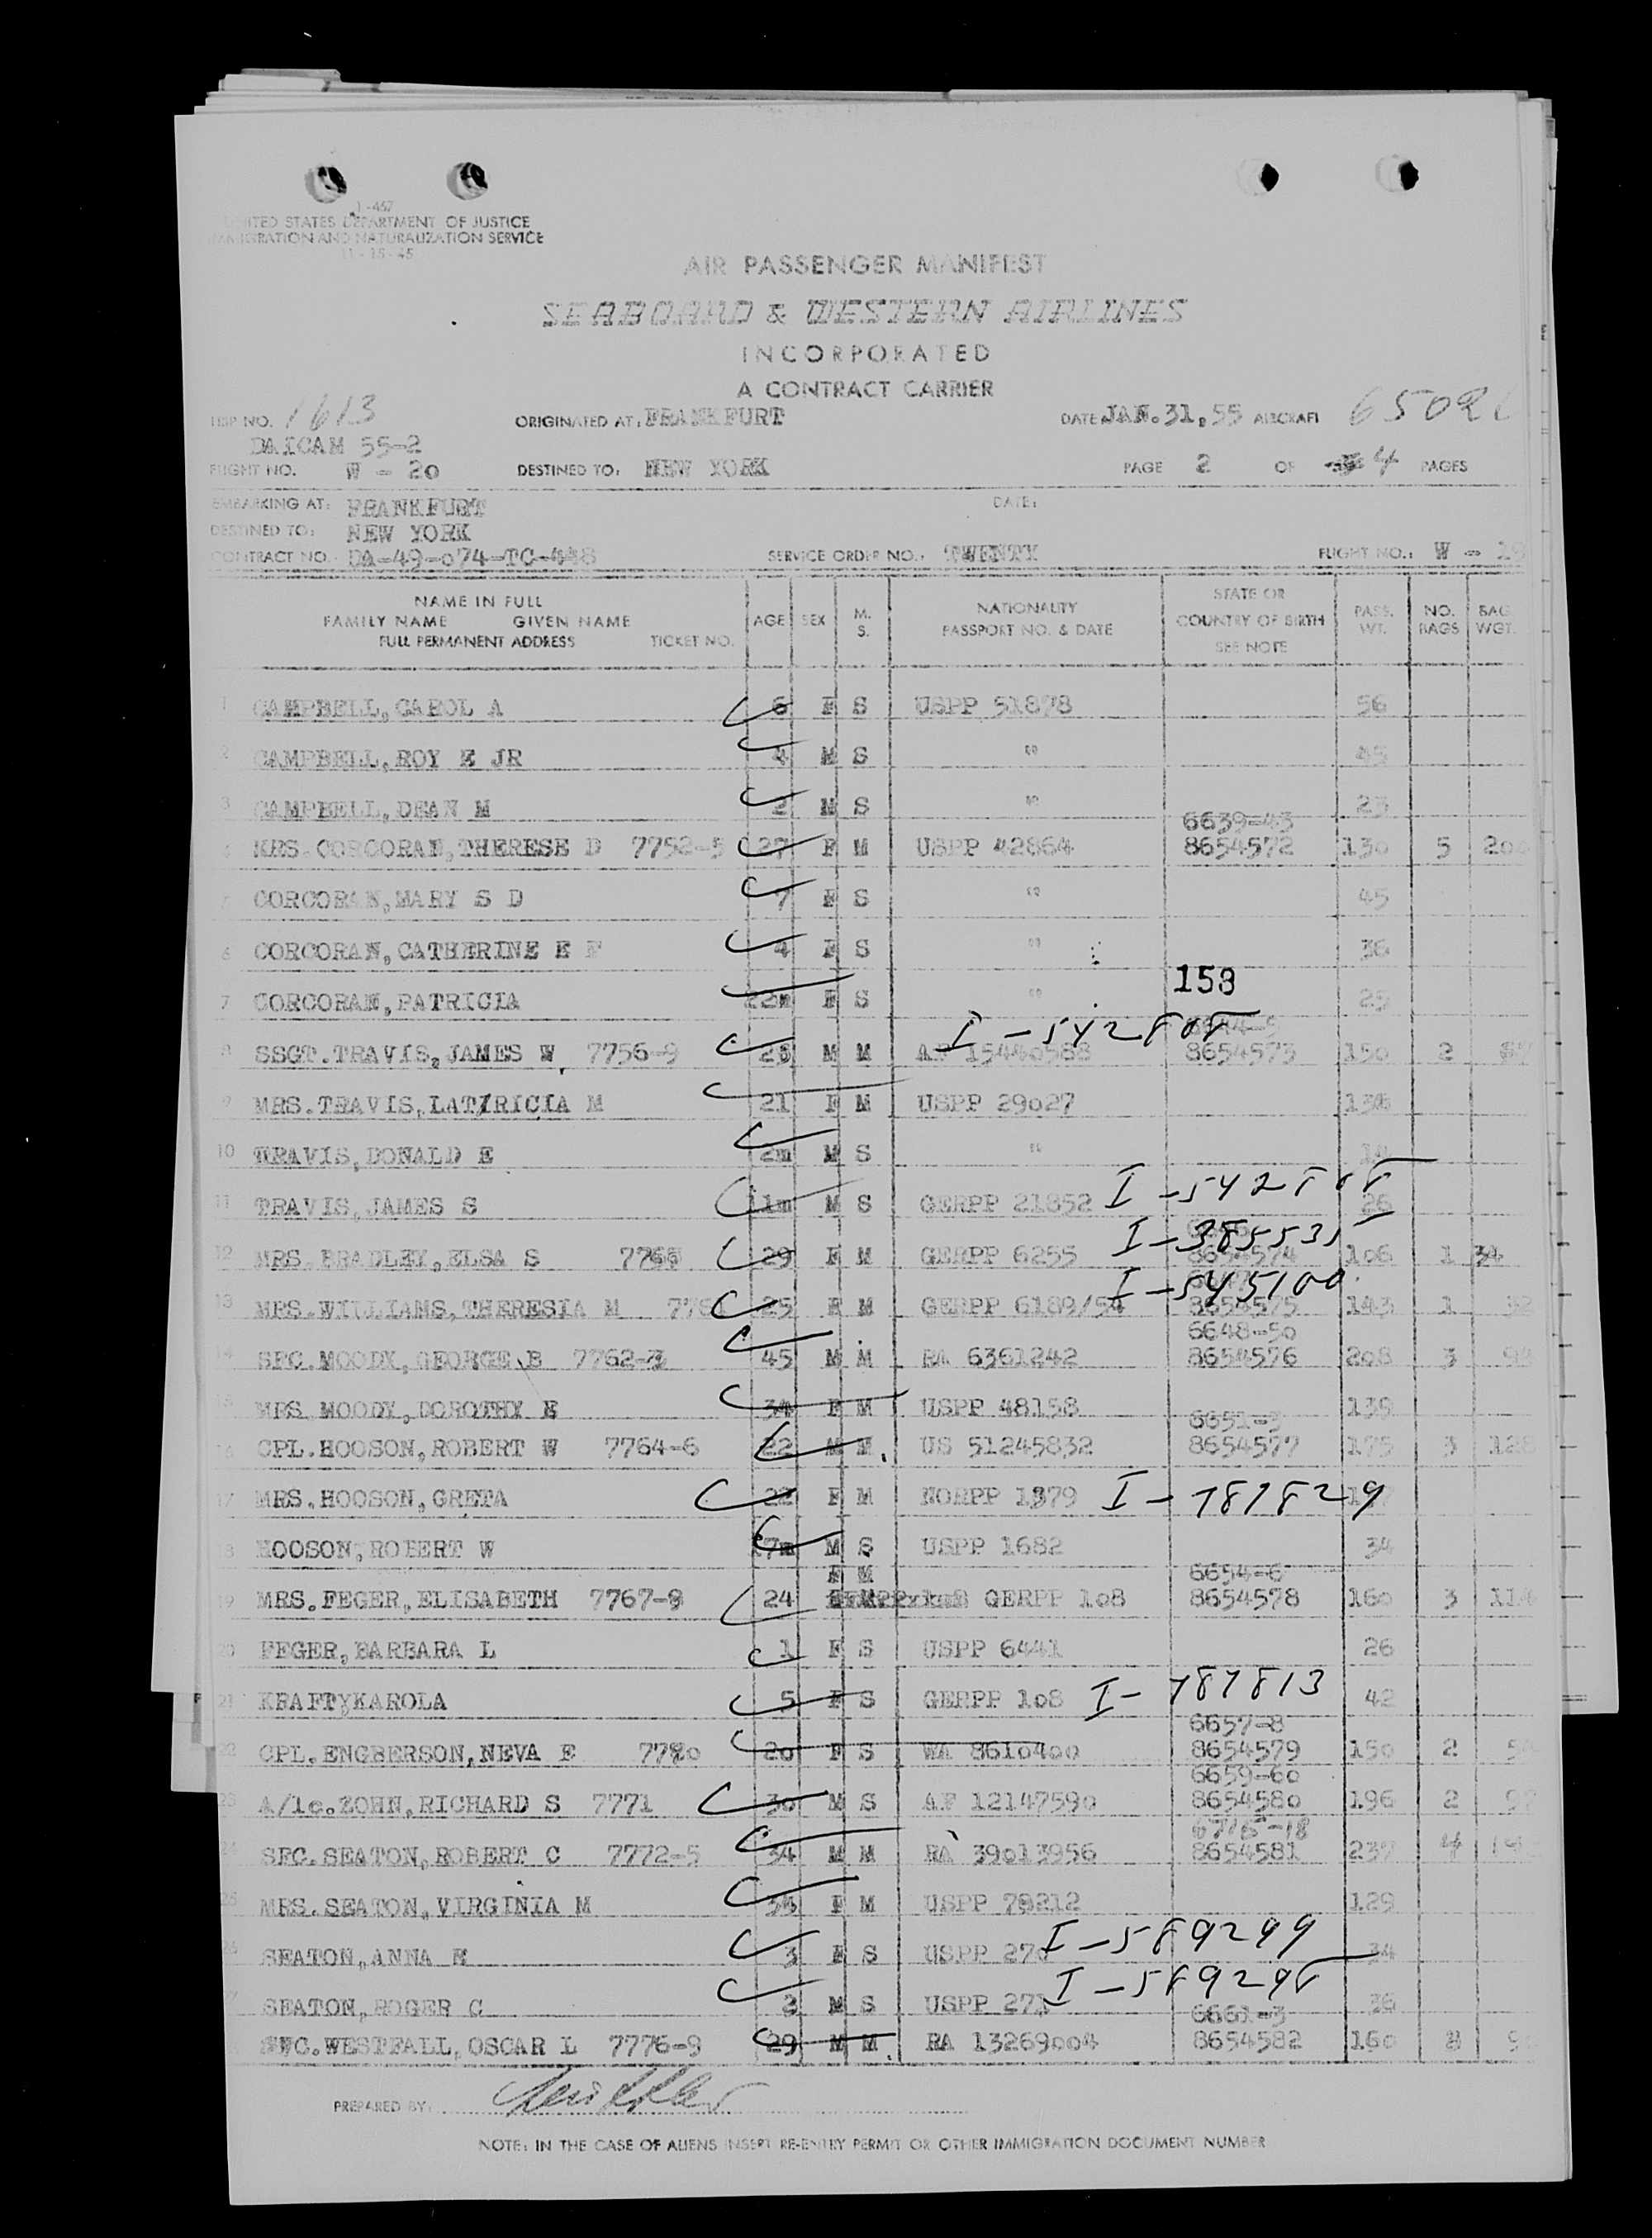 I-457
UNITED STATES DEPARTMENT OF JUSTICE
IMMIGRATION AND NATURALIZATION SERVICE
11-15-45
AIR PASSENGER MANIFEST
SEABOARD & WESTERN AIRLINES
INCORPORATED
A CONTRACT CARRIER
TRIP NO. 1613 ORIGINATED AT: FRANKFURT DATE JAN.31,55 AIRCRAFT 6502
DAICAM 55-2
FLIGHT NO. W - 20 DESTINED TO: NEW YORK PAGE 2 OF 4 PAGES
EMBARKING AT: FRANKFURT DATE:
DESTINED TO: NEW YORK
CONTRACT NO. DA-49-074-TC-448 SERVICE ORDER NO.: TWENTY FLIGHT NO.: W -
NAME IN FULL
FAMILY NAME GIVEN NAME
FULL PERMANENT ADDRESS TICKET NO. AGE SEX M. S. NATIONALITY PASSPORT NO. & DATE STATE OR COUNTRY OF BIRTH SEE NOTE PASS. WT. NO. BAGS BAG. WGT.
1 CAMPBELL, CAROL A 6 F S USPP 51878 56
2 CAMPBELL, ROY E JR 4 M S " 45
3 CAMPBELL, DEAN M 2 M S " 23
6639-43
4 MRS. CORCORAN, THERESE D 7752-5 27 F M USPP 42864 8654572 130 5 200
5 CORCORAN, MARY S D 7 F S " 45
6 CORCORAN, CATHERINE E F 4 F S " 36
158
7 CORCORAN, PATRICIA 22m F S " 25
I-542808
8 SSGT. TRAVIS, JAMES W 7756-9 26 M M AF 15440568 8654573 150 2
9 MRS. TRAVIS, LATIRICIA M 21 F M USPP 29027 136
10 TRAVIS, DONALD E 2m M S " 14
11 TRAVIS, JAMES S 11m M S GERPP 21852 I-542808 26
12 MRS. BRADLEY, ELSA S 7760 29 F M GERPP 6255 I-385535 8654574 106 1 34
13 MRS. WILLIAMS, THERESIA M 7761 25 F M GERPP 6189/54 I-545100 8654575 143 1 32
6648-50
14 SFC. MOODY, GEORGE B 7762-3 45 M M RA 6361242 8654576 208 3
15 MRS MOODY, DOROTHY E 34 F M USPP 48158 139
6651-3
16 CPL. HOOSON, ROBERT W 7764-6 22 M M US 51245832 8654577 175 3 128
17 MRS. HOOSON, GRETA 22 F M NORPP 1379 I-787829
18 HOOSON, ROBERT W 17m M S USPP 1682 34
F M 6654-6
19 MRS. FEGER, ELISABETH 7767-9 24 GERPP 108 8654578 160 3 114
20 FEGER, BARBARA L 1 F S USPP 6441 26
21 KRAFT, KAROLA 5 F S GERPP 108 I-787813 42
6657-8
22 CPL. ENGBERSON, NEVA E 7770 20 F S WA 8610400 8654579 150 2
6659-60
23 A/1c. ZOHN, RICHARD S 7771 30 M S AF 12147590 8654580 196 2
6715-18
24 SFC. SEATON, ROBERT C 7772-5 34 M M RA 39013956 8654581 237 4
25 MRS. SEATON, VIRGINIA M 34 F M USPP 79212 129
26 SEATON, ANNA E 3 F S USPP 270 I-589299 34
27 SEATON, ROGER C 2 M S USPP 271 I-589298 36
6661-3
WESTFALL, OSCAR L 7776-9 29 M M RA 13269004 8654582 160 3
PREPARED BY:
NOTE: IN THE CASE OF ALIENS INSERT RE-ENTRY PERMIT OR OTHER IMMIGRATION DOCUMENT NUMBER